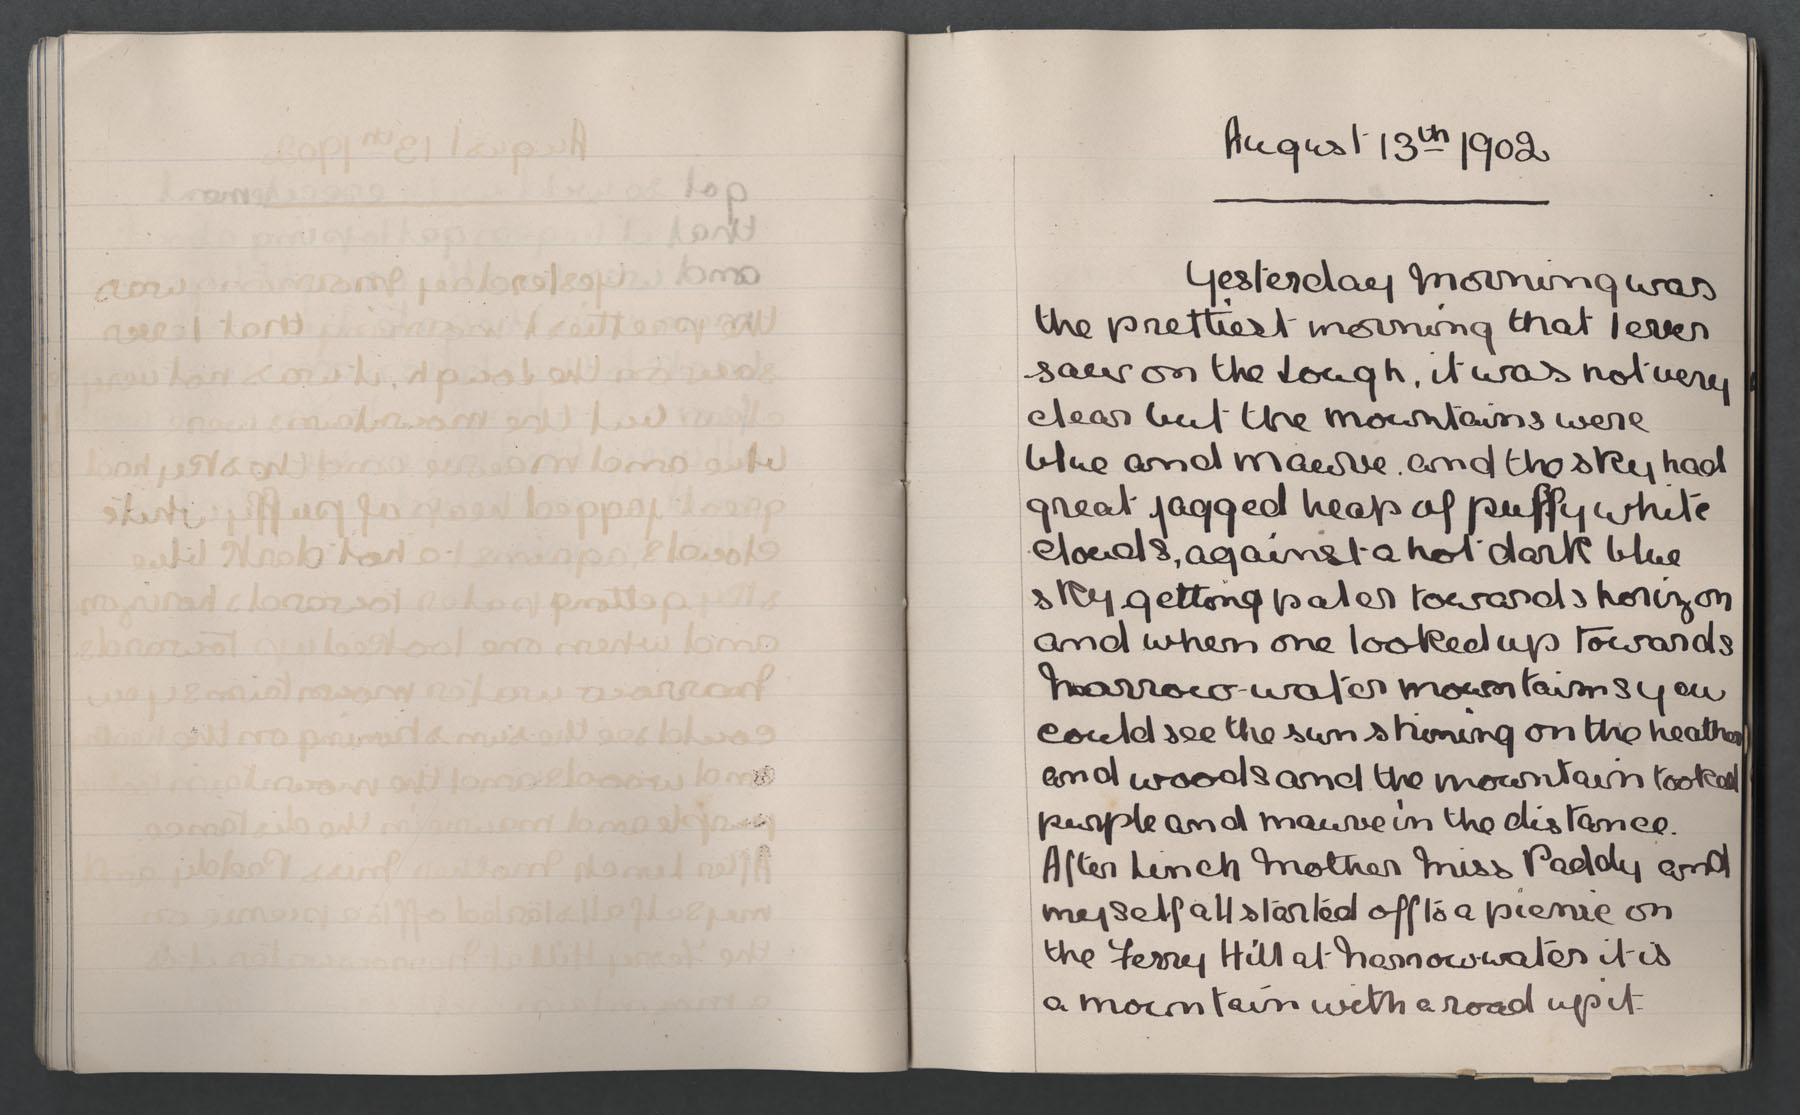 August 13th 1902
Yesterday Morning was
the prettiest morning that I ever
saw on the Lough, it was not very
clear but the mountains were
blue and mauve. and the sky had
great jagged heap of puffy white
clouds, against a hot dark blue
sky getting paler towards horizon
and when one looked up towards
Narrow-water mountains you
could see the sun shining on the heather
and woods and the mountain looked
purple and mauve in the distance.
After Lunch Mother Miss Paddy and
myself all started off to a picnic on
the Ferry Hill at Narrow-water it is
a mountain with a road up it